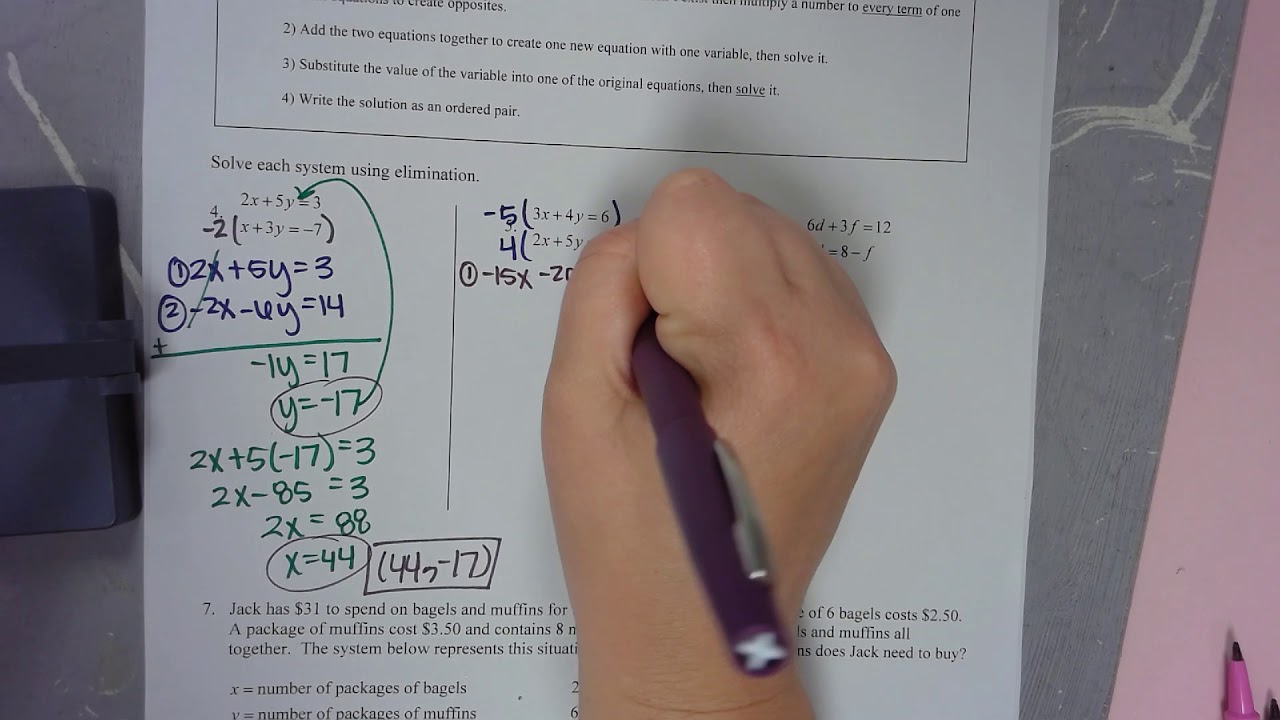 equations to create opposites. then multiply a number to every term of one
2) Add the two equations together to create one new equation with one variable, then solve it.
3) Substitute the value of the variable into one of the original equations, then solve it.
4) Write the solution as an ordered pair.
Solve each system using elimination.
4. 2x + 5y = 3
-2(x + 3y = -7)
① 2x + 5y = 3
② -2x - 6y = 14
+
-1y = 17
y = -17
2x + 5(-17) = 3
2x - 85 = 3
2x = 88
x = 44
(44, -17)
-5(3x + 4y = 6)
4(2x + 5y
① -15x - 20
6d + 3f = 12
= 8 - f
7. Jack has $31 to spend on bagels and muffins for of 6 bagels costs $2.50.
A package of muffins cost $3.50 and contains 8 and muffins all
together. The system below represents this does Jack need to buy?
x = number of packages of bagels 2
y = number of packages of muffins 6